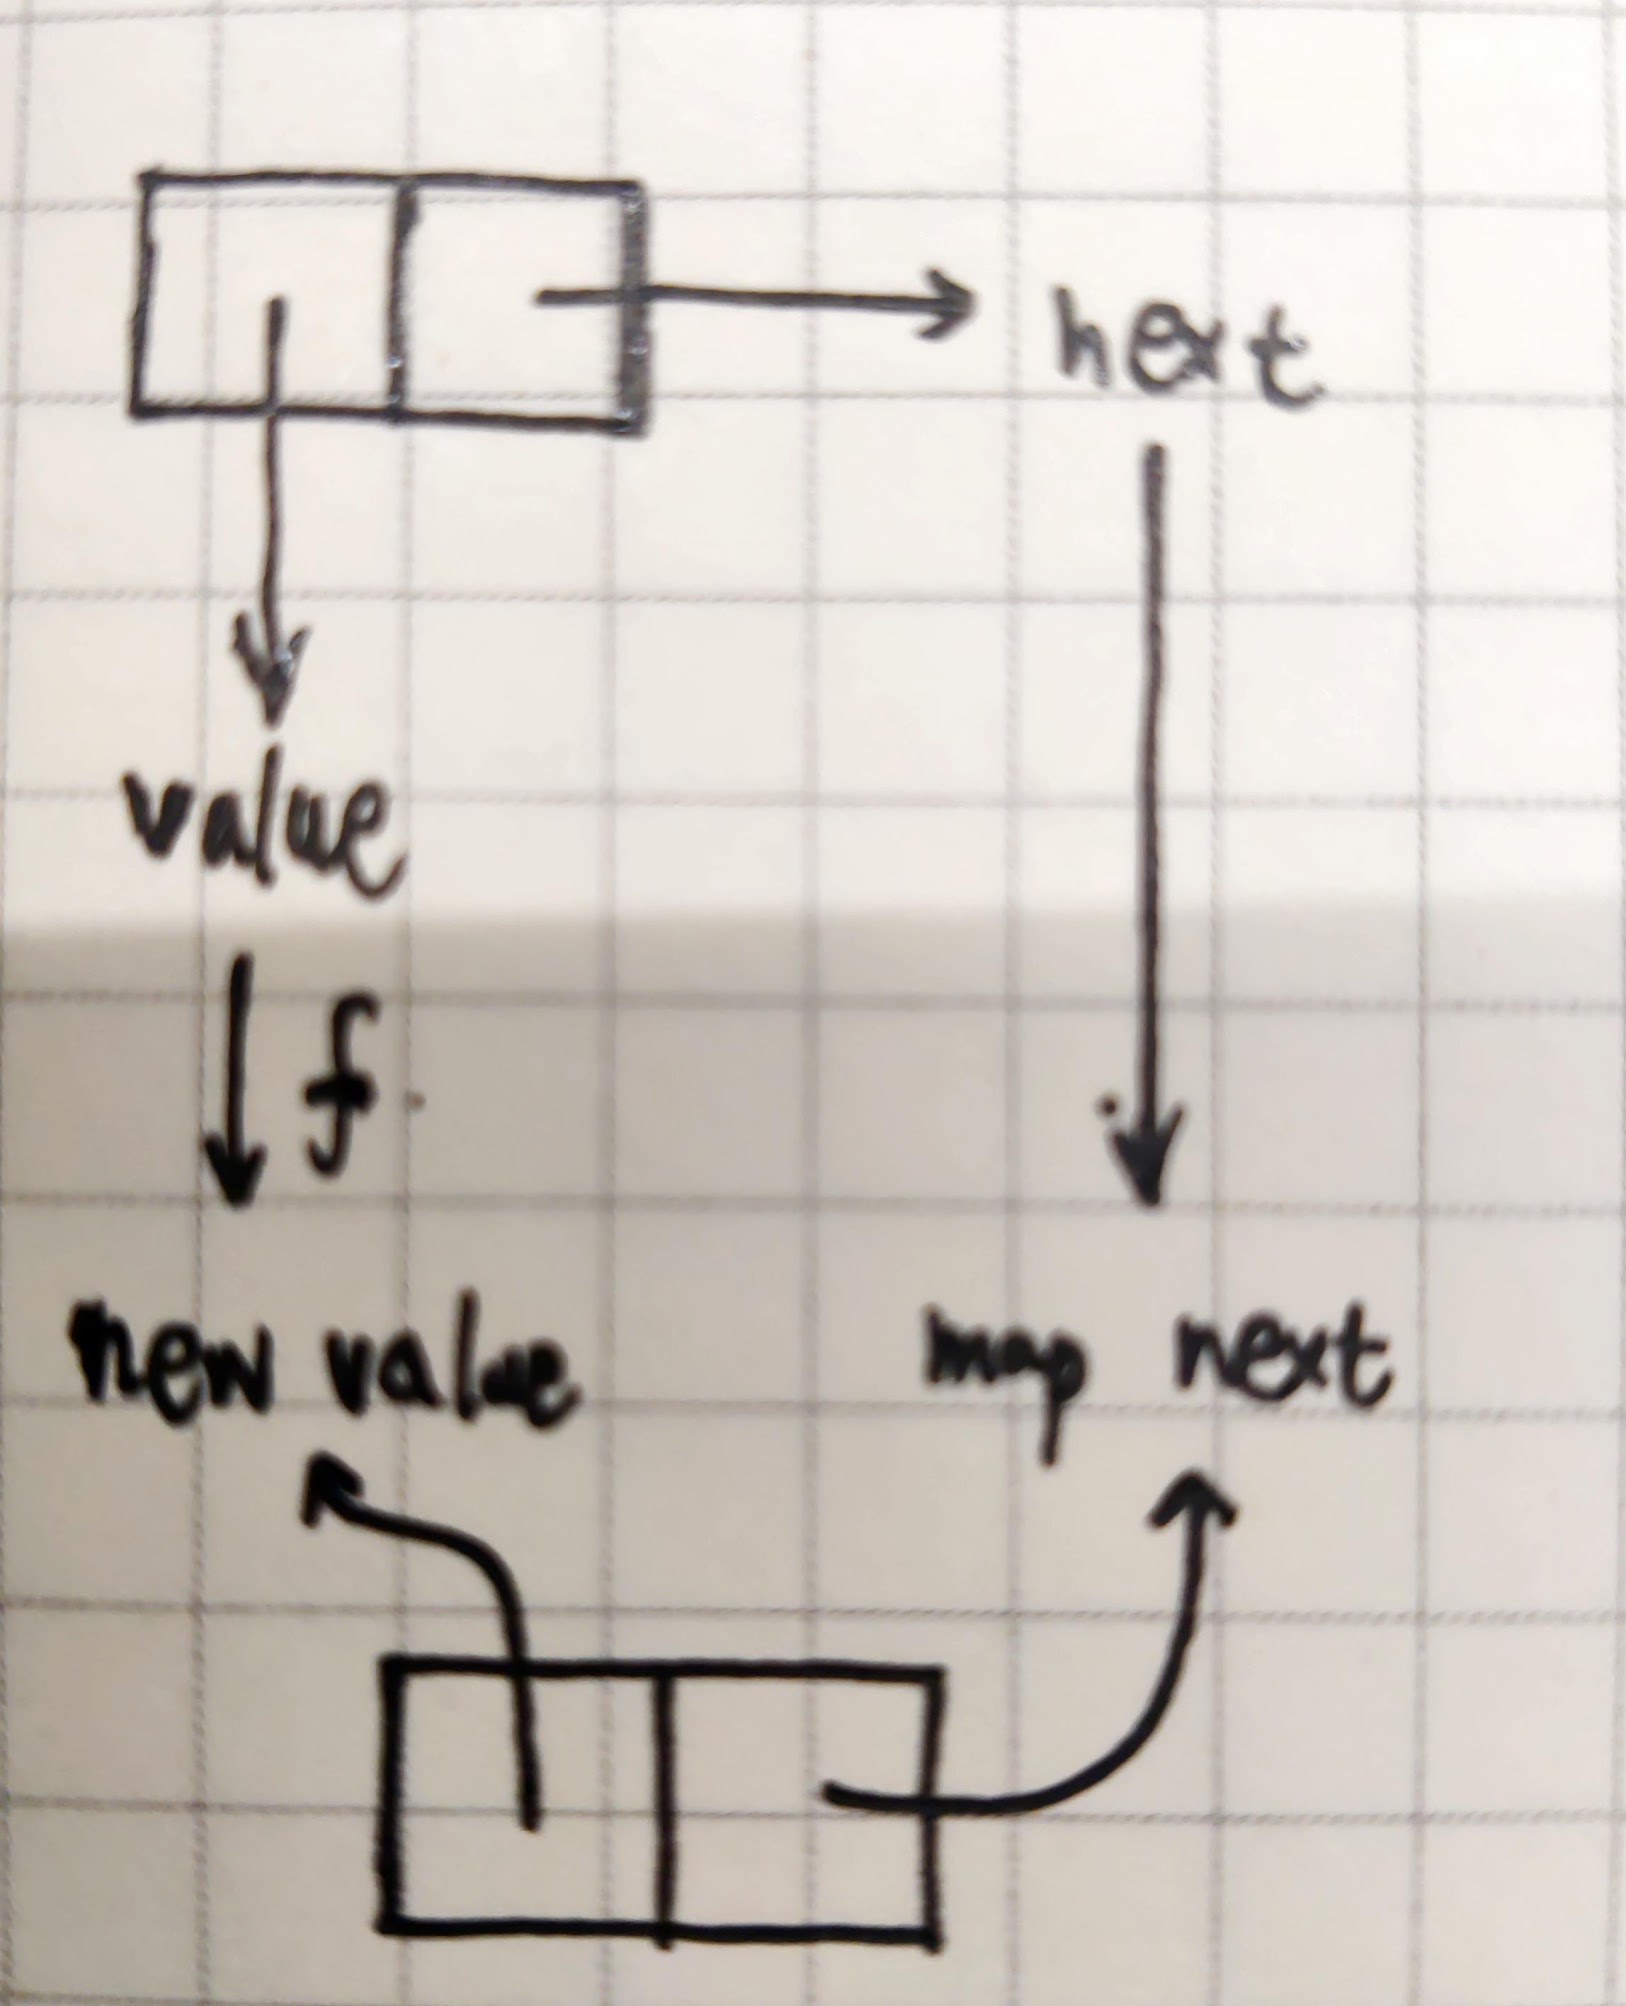 next
value
f
new value
map next